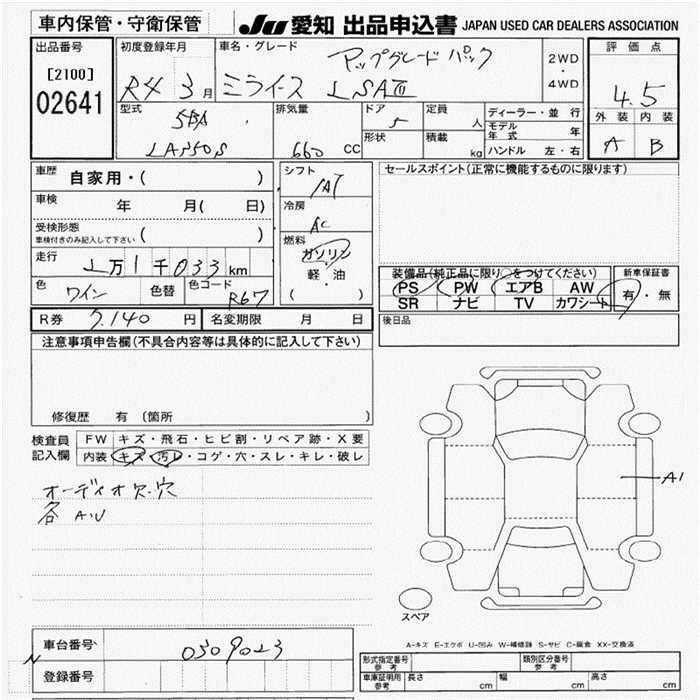 車内保管・守衛保管
JU 愛知 出品申込書 JAPAN USED CAR DEALERS ASSOCIATION
出品番号 初度登録年月 車名・グレード アップグレードパック 2WD・4WD 評価点
[2100]
02641 R4 3月 ミライース LSAⅢ 4.5
型式 5BA 排気量 ドア 5 定員 人 ディーラー・並行 外装 内装
モデル年式 年
LA350S 660 CC 形状 積載 kg ハンドル 左・右 A B
車歴 自家用・( ) シフト /AT セールスポイント(正常に機能するものに限ります)
車検 年 月( 日) 冷房 AC
受検形態
車検付きのみ記入して下さい ( )
燃料 ガソリン
走行 1万1千033km 軽・油
( )
装備品(純正品に限り○をつけてください) 新車保証書
PS PW エアB AW 有・無
SR ナビ TV カワシート
色 ワイン 色替 色コード R67
R券 7.140 円 名変期限 月 日 後日品
注意事項申告欄(不具合内容等は具体的に記入して下さい)
修復歴 有 (箇所 )
検査員 FW キズ・飛石・ヒビ割・リペア跡・X要
記入欄 内装 キズ・汚レ・コゲ・穴・スレ・キレ・破レ
オーディオ欠・穴
各 A・U
A1
スペア
A-キズ E-エクボ U-凹み W-補修跡 S-サビ C-腐食 XX-交換済
車台番号 0309023
登録番号
形式指定番号 参考 類別区分番号 参考
車庫証明用 参考 長さ cm 幅 cm 高さ cm